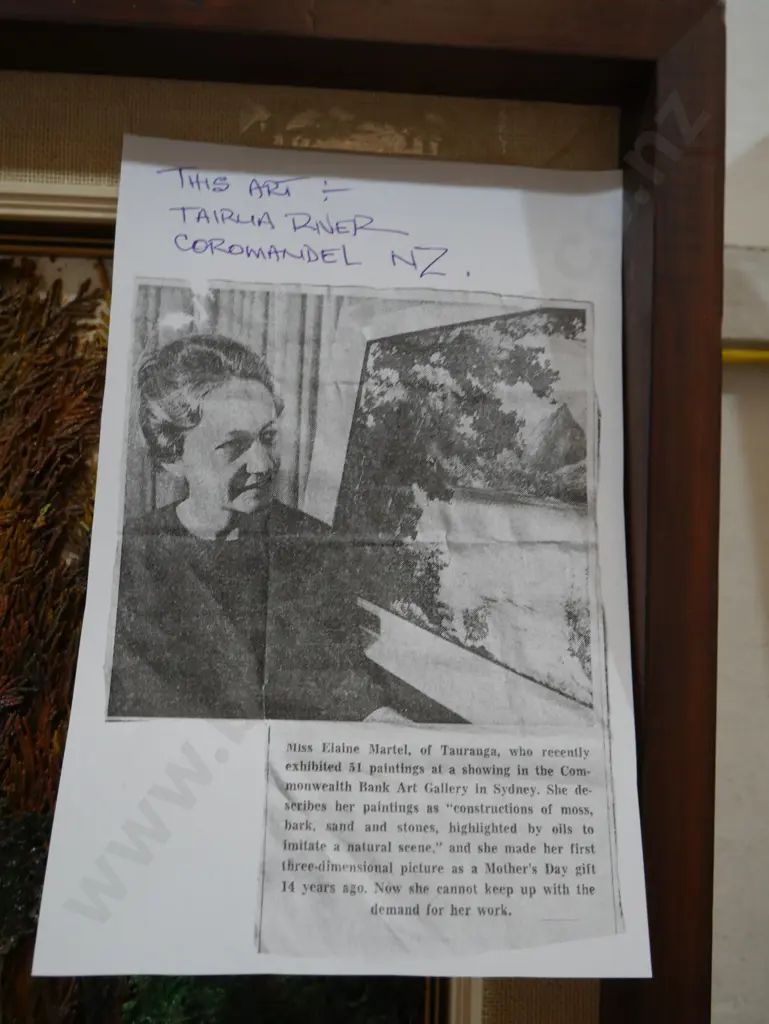 THIS ART :-
TAIRUA RIVER
COROMANDEL NZ.
Miss Elaine Martel, of Tauranga, who recently
exhibited 51 paintings at a showing in the Com-
monwealth Bank Art Gallery in Sydney. She de-
scribes her paintings as "constructions of moss,
bark, sand and stones, highlighted by oils to
imitate a natural scene," and she made her first
three-dimensional picture as a Mother's Day gift
14 years ago. Now she cannot keep up with the
demand for her work.
www.
co.nz